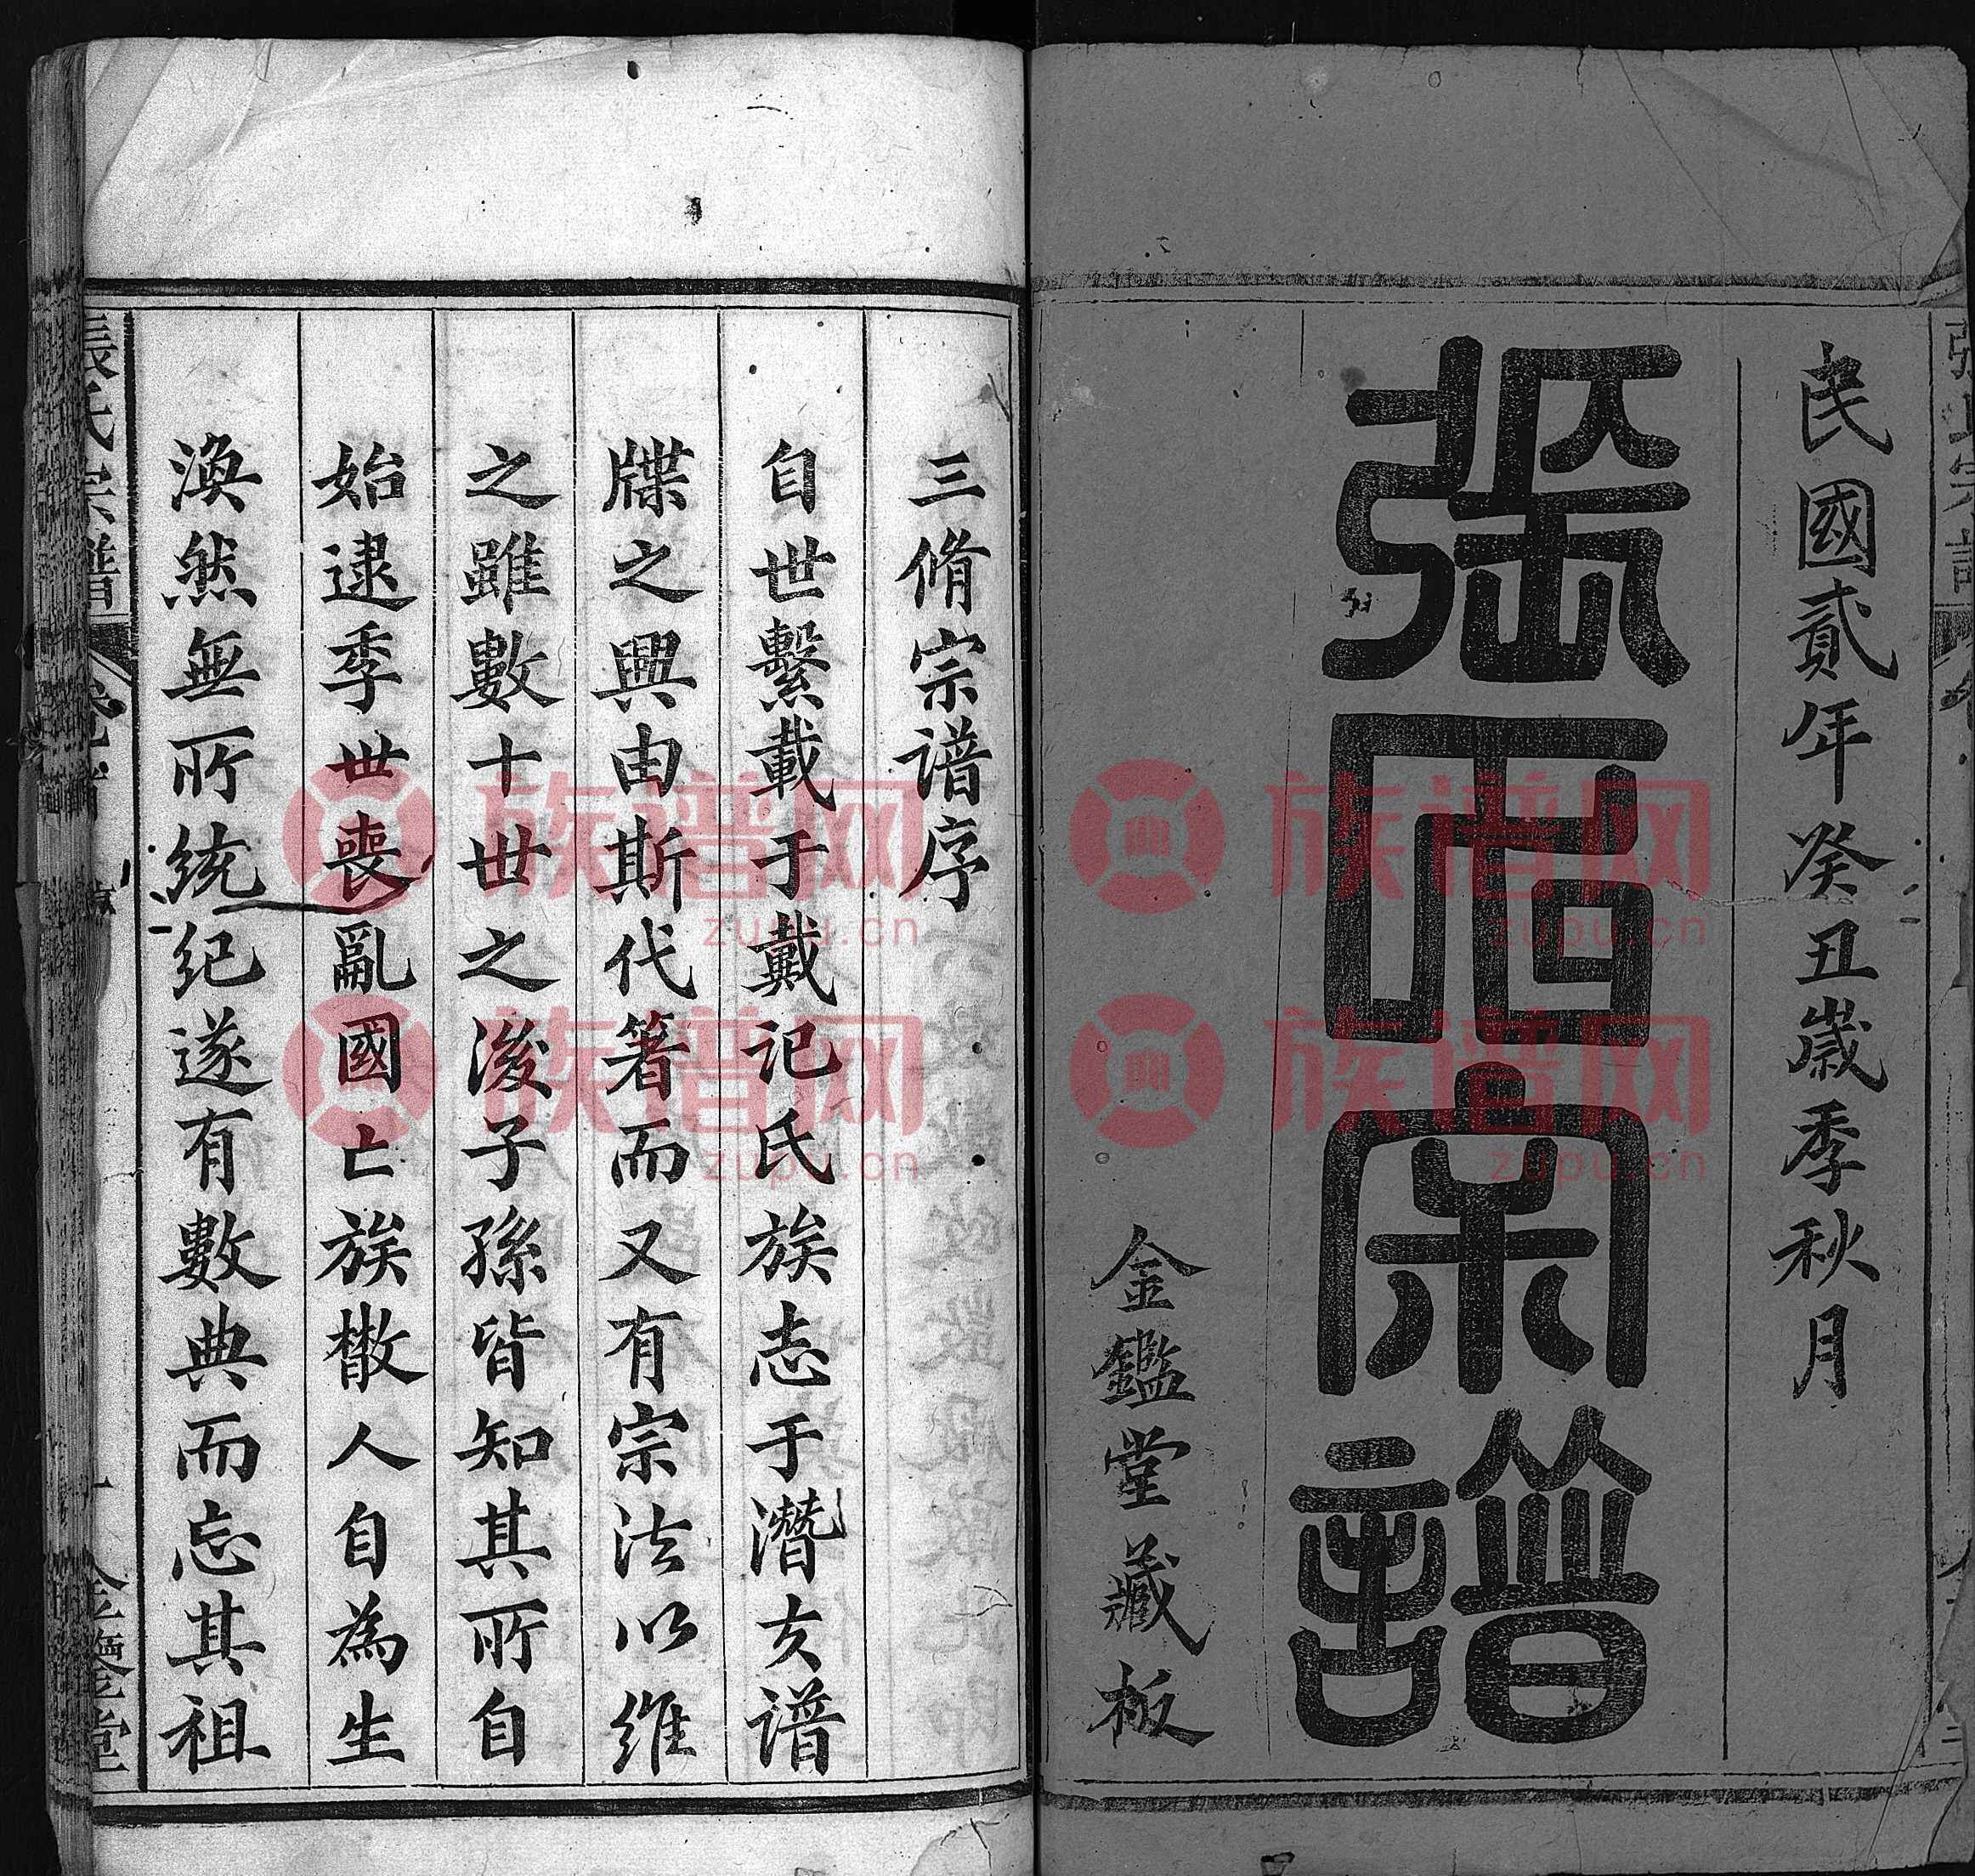 民國貳年癸丑歲季秋月
張氏宗譜
金鑑堂藏板
三脩宗譜序
自世繫載于戴記氏族志于潛夫譜
牒之興由斯代著而又有宗法以維
之雖數十世之後子孫皆知其所自
始逮季世喪亂國亡族散人自為生
渙然無所統紀遂有數典而忘其祖
張氏宗譜
金鑑堂
族谱网
zupu.cn
族谱网
zupu.cn
族谱网
zupu.cn
族谱网
zupu.cn